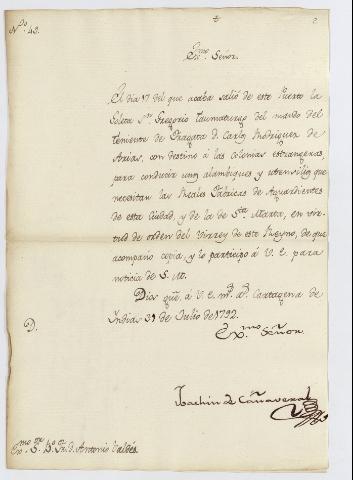 N.º 42.
Ex.mo Señor.
El dia 17 del que acaba salió de este Puerto la
Goleta S.n Gregorio Taumaturgo del mando del
Teniente de Fragata d. Carlos Rodriguez de
Arias, con destino á las colonias estrangeras,
para conducir unos alambiques y utensilios que
necesitan las Reales Fábricas de Aguardientes
de esta Ciudad, y de la de S.ta Marta, en vir-
tud de orden del Virrey de este Reyno, de que
acompaño copia, y lo participo á V. E. para
noticia de S. M.
Dios gue. á V. E. m.s a.s Cartagena de
Indias 31 de Julio de 1792.
Ex.mo Señor
D.
Joachin de Cañaveral
Ex.mo S.or B.o Fr. d. Antonio Valdés.